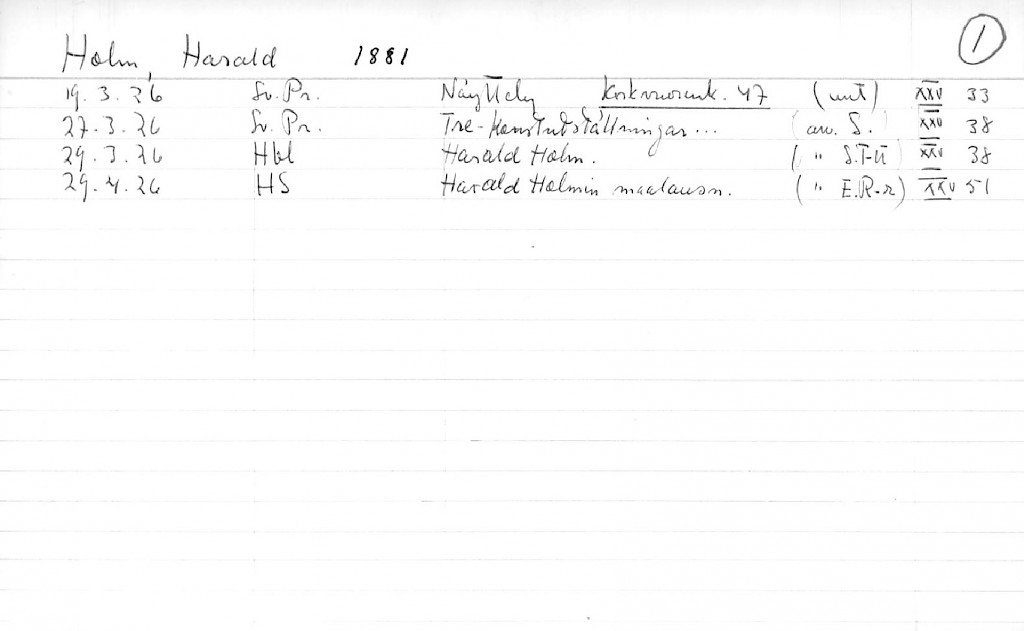 1
Holm, Harald 1881
19.3.26 Sv.Pr. Näyttely Korkeavuorenk. 47 (uut) XXV 33
27.3.26 Sv.Pr. Tre konstutställningar... (arv. S.) XXV 38
29.3.26 Hbl Harald Holm. (" S.T-ll) XXV 38
29.4.26 HS Harald Holmin maalausn. (" E.R-r) XXV 51